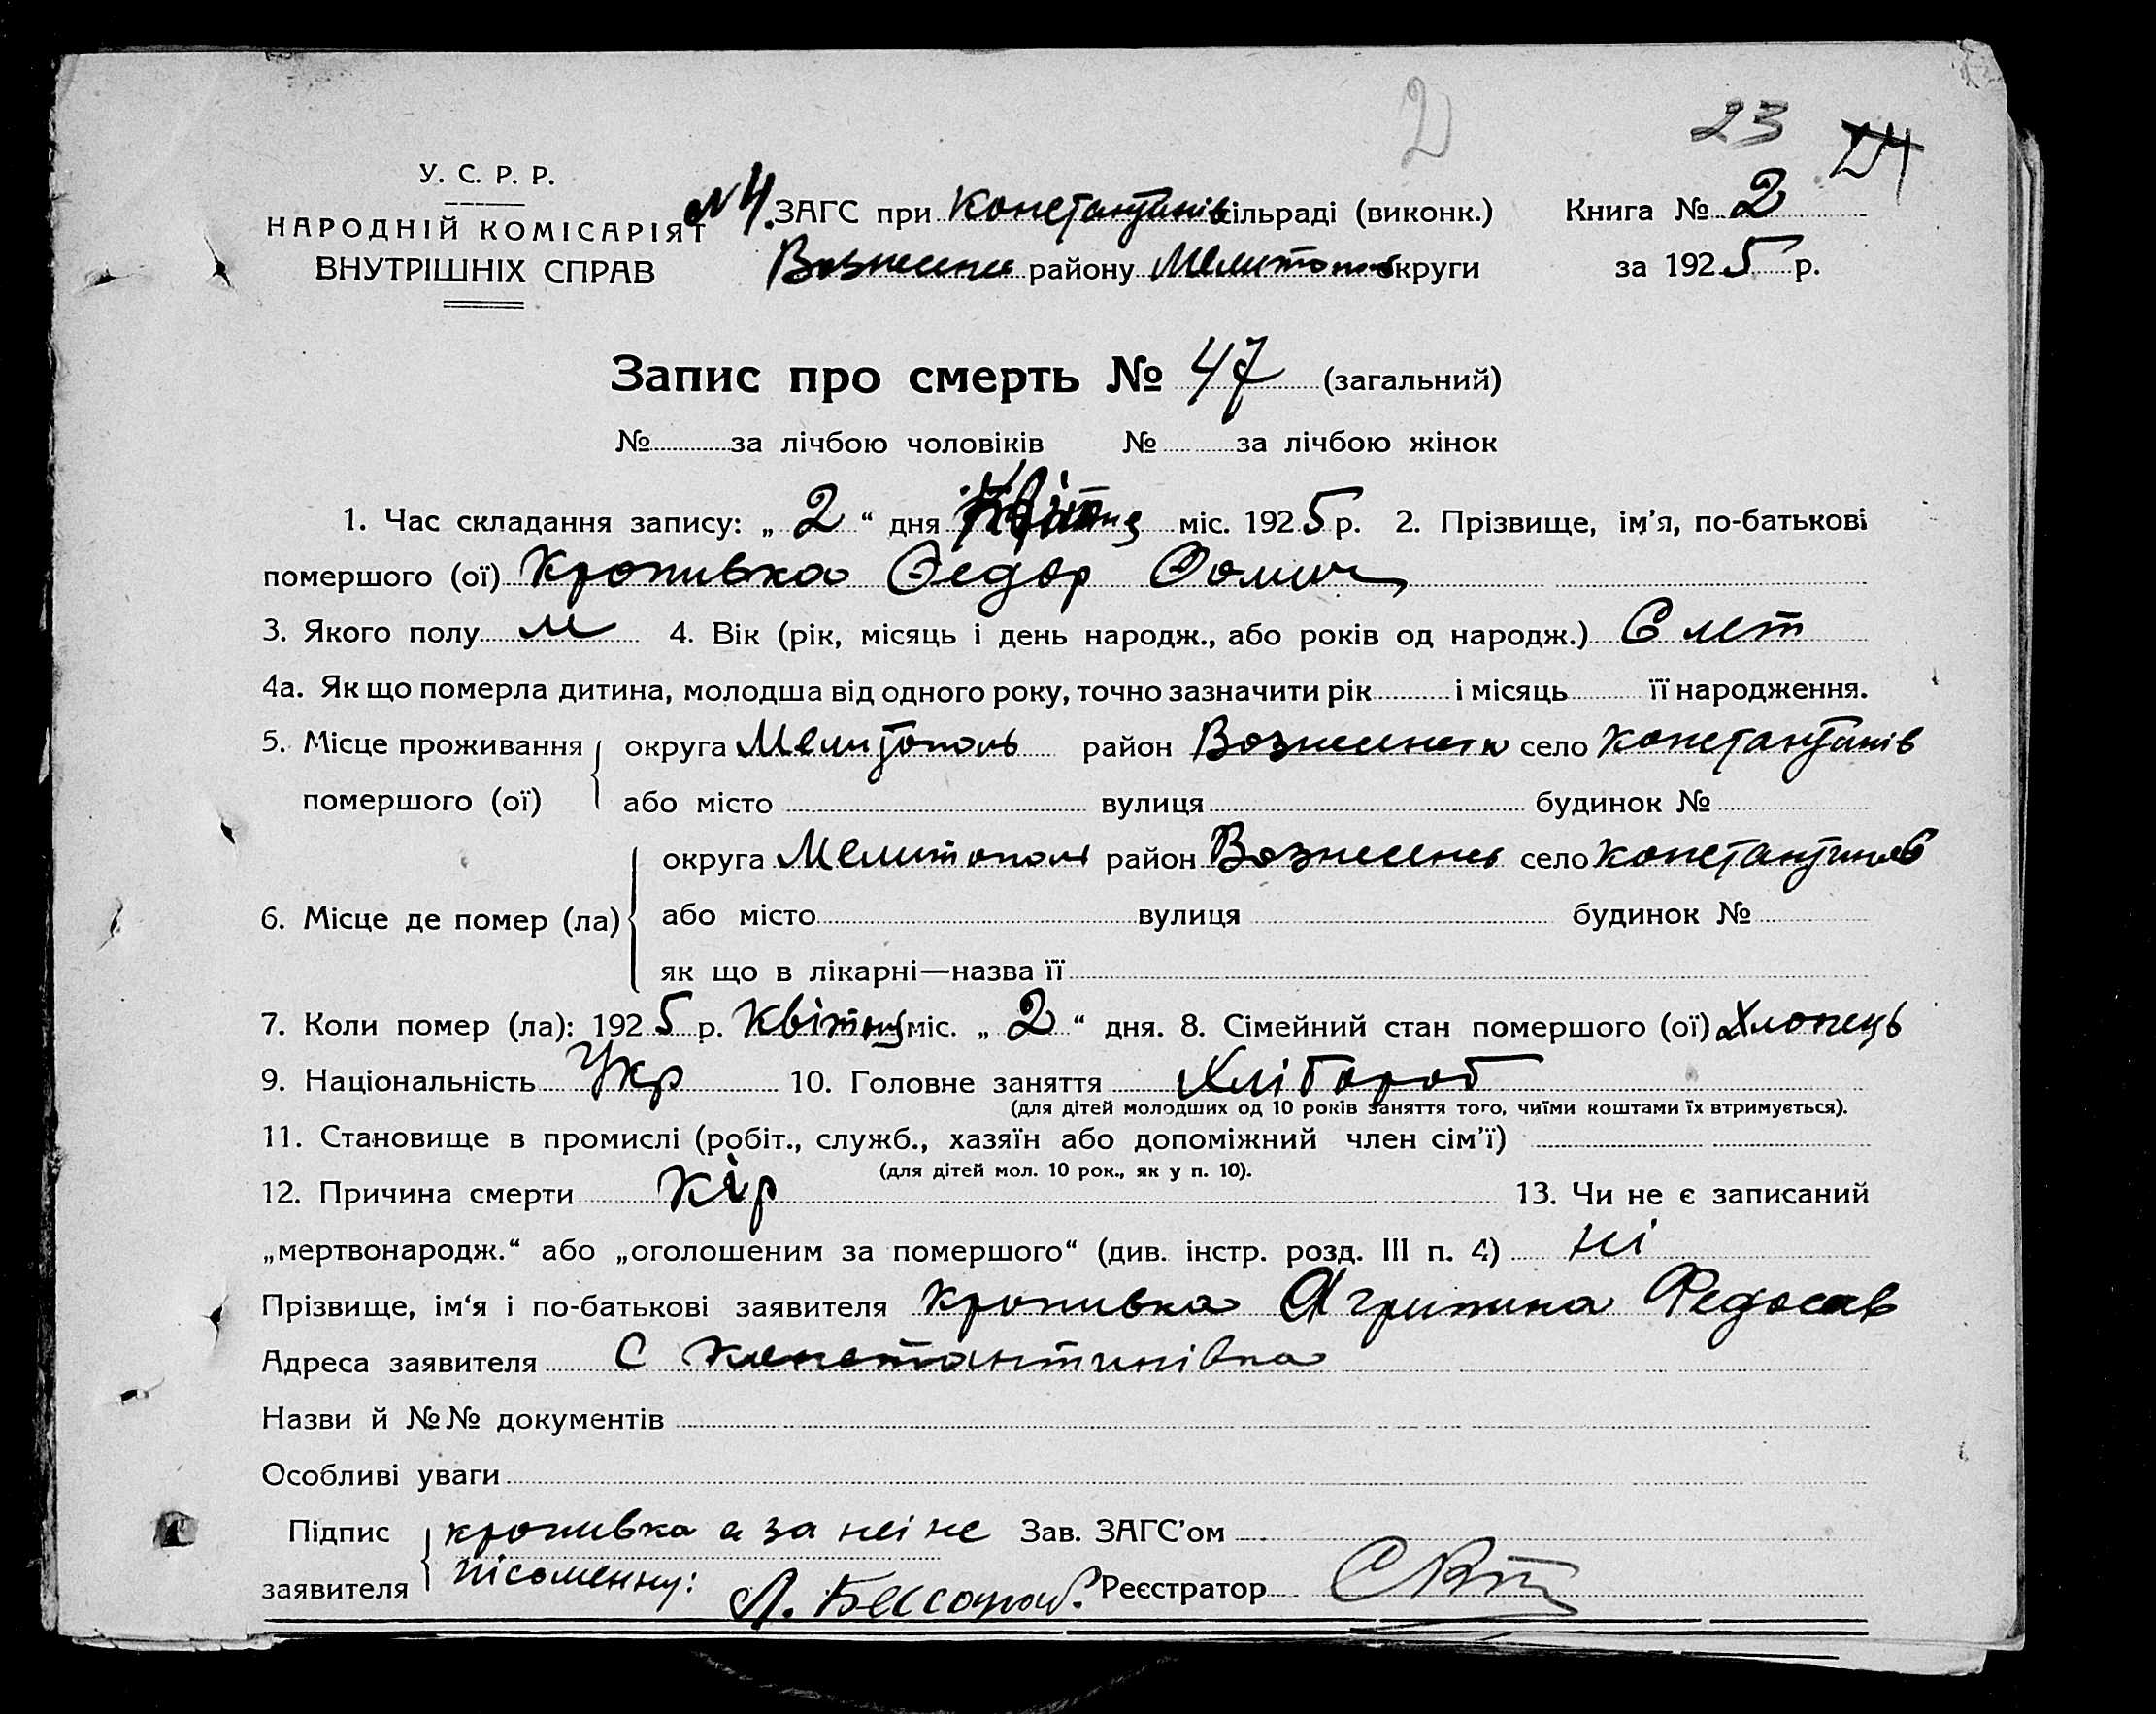 2
23 24
У. С. Р. Р.
НАРОДНІЙ КОМІСАРІЯТ
ВНУТРІШНІХ СПРАВ
№ 4. ЗАГС при Константинів сільраді (виконк.)
Вознесенс району Мелитопол округи
Книга № 2
за 1925 р.
Запис про смерть № 47 (загальний)
№ за лічбою чоловіків № за лічбою жінок
1. Час складання запису: „ 2 “ дня Квітня міс. 1925 р. 2. Прізвище, ім’я, по-батькові
помершого (ої) Кропивка Федор Фомич
3. Якого полу м 4. Вік (рік, місяць і день народж., або років од народж.) 6 лет
4а. Як що померла дитина, молодша від одного року, точно зазначити рік і місяць її народження.
5. Місце проживання округа Мелитополь район Вознесенск село Констянтинів
помершого (ої) або місто вулиця будинок №
округа Мелитопол район Вознесенс село Константинов
6. Місце де помер (ла) або місто вулиця будинок №
як що в лікарні—назва її
7. Коли помер (ла): 1925 р. Квітня міс. „ 2 “ дня. 8. Сімейний стан помершого (ої) Хлопець
9. Національність Укр 10. Головне заняття Хлібороб
(для дітей молодших од 10 років заняття того, чиїми коштами їх втримується).
11. Становище в промислі (робіт., служб., хазяїн або допоміжний член сім’ї)
(для дітей мол. 10 рок., як у п. 10).
12. Причина смерти Кір 13. Чи не є записаний
„мертвонародж.“ або „оголошеним за помершого“ (див. інстр. розд. III п. 4) ні
Прізвище, ім‘я і по-батькові заявителя Кропивка Агрипина Федосов
Адреса заявителя С Константинівка
Назви й №№ документів
Особливі уваги
Підпис кропивка а за неі не Зав. ЗАГС’ом
заявителя пісоменну: Реєстратор